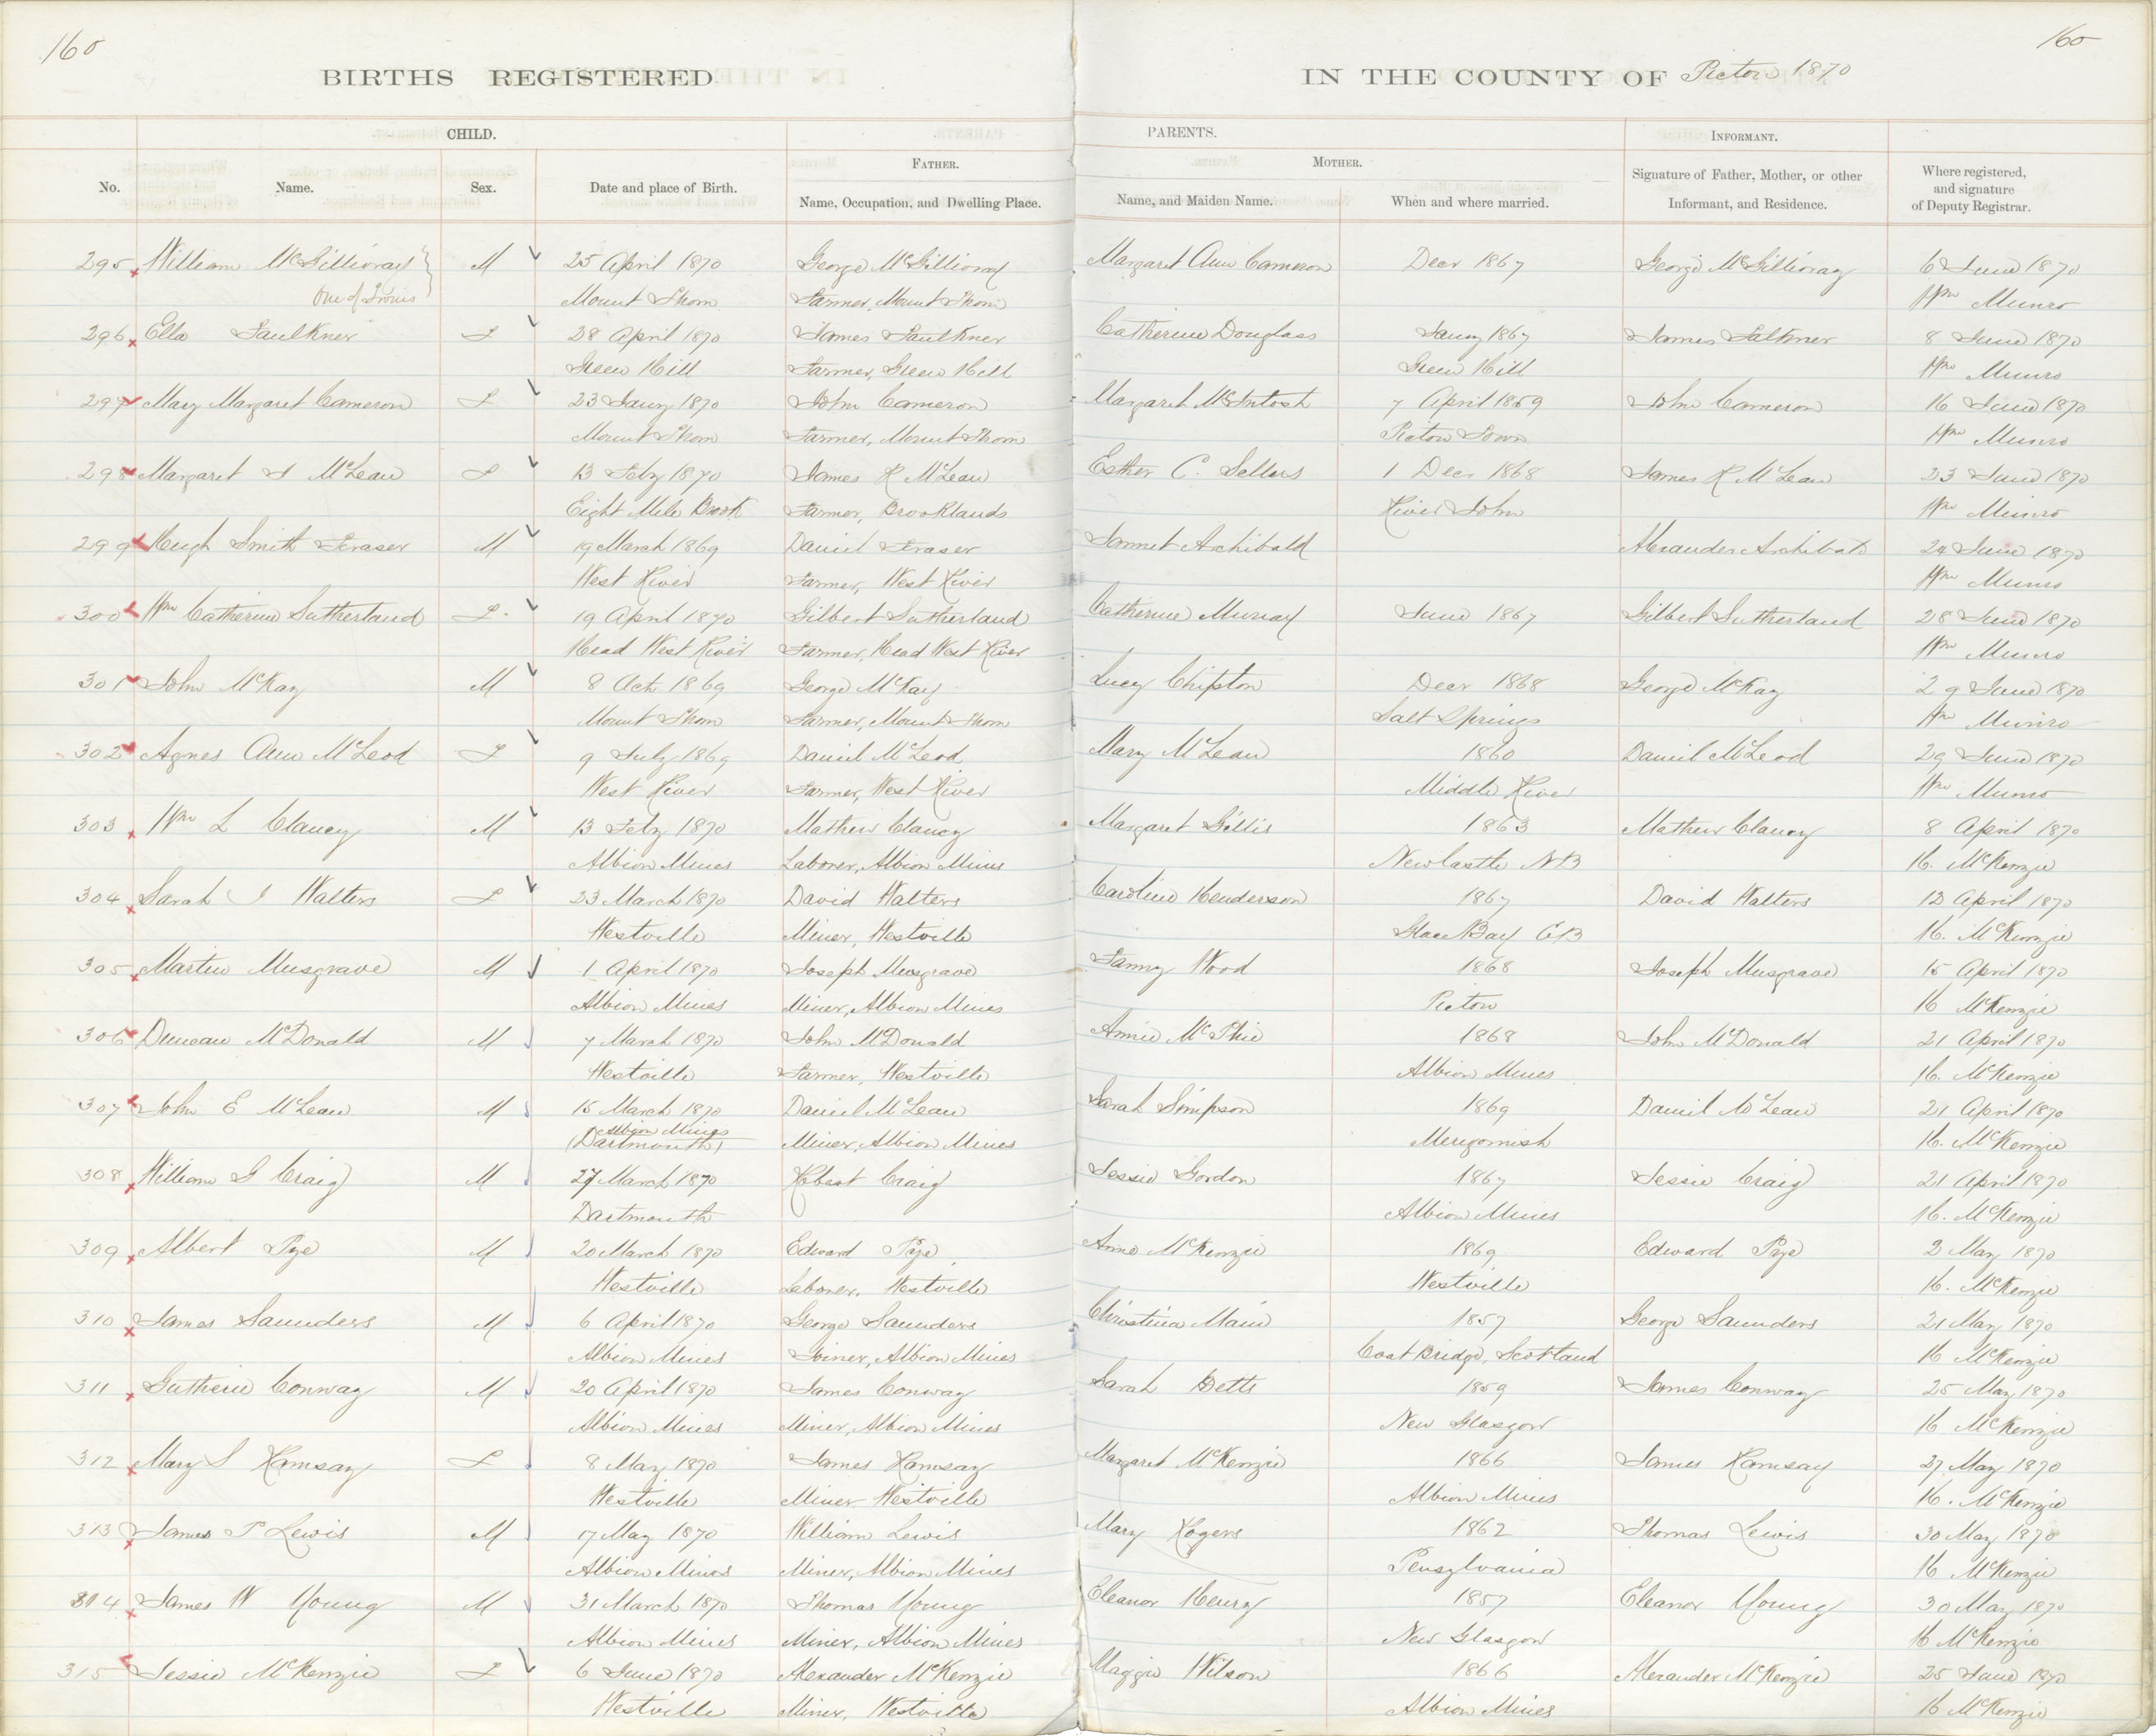 160
160
BIRTHS REGISTERED IN THE COUNTY OF Pictou 1870
CHILD. PARENTS. INFORMANT.
FATHER. MOTHER.
No. Name. Sex. Date and place of Birth. Name, Occupation, and Dwelling Place. Name, and Maiden Name. When and where married. Signature of Father, Mother, or other Informant, and Residence. Where registered, and signature of Deputy Registrar.
295 William McGillivray M 25 April 1870 George McGillivray Margaret Ann Cameron Decr 1867 George McGillivray 6 June 1870
One of Twins Mount Thom Farmer, Mount Thom Wm Munro
296 Ella Faulkner F 28 April 1870 James Faulkner Catherine Douglass Jany 1867 James Falkner 8 June 1870
Green Hill Farmer, Green Hill Green Hill Wm Munro
297 Mary Margaret Cameron F 23 Jany 1870 John Cameron Margaret McIntosh 7 April 1859 John Cameron 16 June 1870
Mount Thom Farmer, Mount Thom Pictou Town Wm Munro
298 Margaret McLean F 13 Feby 1870 James R McLean Esther C. Sellers 1 Dec 1868 James R McLean 23 June 1870
Eight Mile Brook Farmer, Brooklands River John Wm Munro
299 Hugh Smith Fraser M 19 March 1869 Daniel Fraser Jannet Archibald Alexander Archibald 24 June 1870
West River Farmer, West River Wm Munro
300 Wm Catherine Sutherland F 19 April 1870 Gilbert Sutherland Catherine Murray June 1867 Gilbert Sutherland 28 June 1870
Head West River Farmer, Head West River Wm Munro
301 John McKay M 8 Oct 1869 George McKay Lucy Chipton Decr 1868 George McKay 29 June 1870
Mount Thom Farmer, Mount Thom Salt Springs Wm Munro
302 Agnes Ann McLeod F 9 July 1869 Daniel McLeod Mary McLean 1860 Daniel McLeod 29 June 1870
West River Farmer, West River Middle River Wm Munro
303 Wm L Clancy M 13 Feby 1870 Mathew Clancy Margaret Gillis 1863 Mathew Clancy 8 April 1870
Albion Mines Laborer, Albion Mines Newcastle NB H. McKenzie
304 Sarah J Walters F 23 March 1870 David Walters Caroline Henderson 1867 David Walters 12 April 1870
Westville Miner, Westville Glace Bay CB H. McKenzie
305 Martin Musgrave M 1 April 1870 Joseph Musgrave Fanny Wood 1868 Joseph Musgrave 15 April 1870
Albion Mines Miner, Albion Mines Pictou H McKenzie
306 Duncan McDonald M 7 March 1870 John McDonald Annie McPhie 1868 John McDonald 21 April 1870
Westville Farmer, Westville Albion Mines H. McKenzie
307 John E McLean M 15 March 1870 Daniel McLean Sarah Simpson 1869 Daniel McLean 21 April 1870
Albion Mines
(Dartmouth) Miner, Albion Mines Merigomish H. McKenzie
308 William G Craig M 27 March 1870 Robert Craig Jessie Gordon 1867 Jessie Craig 21 April 1870
Dartmouth Albion Mines H. McKenzie
309 Albert Pye M 20 March 1870 Edward Pye Anne McKenzie 1869 Edward Pye 2 May 1870
Westville Laborer, Westville Westville H. McKenzie
310 James Saunders M 6 April 1870 George Saunders Christina Main 1857 George Saunders 21 May 1870
Albion Mines Joiner, Albion Mines Coat Bridge, Scotland H McKenzie
311 Gutherie Conway M 20 April 1870 James Conway Sarah Betts 1859 James Conway 25 May 1870
Albion Mines Miner, Albion Mines New Glasgow H McKenzie
312 Mary S Ramsay F 8 May 1870 James Ramsay Margaret McKenzie 1866 James Ramsay 27 May 1870
Westville Miner Westville Albion Mines H. McKenzie
313 James P Lewis M 17 May 1870 William Lewis Mary Rogers 1862 Thomas Lewis 30 May 1870
Albion Mines Miner, Albion Mines Pensylvania H McKenzie
314 James W Young M 31 March 1870 Thomas Young Eleanor Henry 1857 Eleanor Young 30 May 1870
Albion Mines Miner, Albion Mines New Glasgow H McKenzie
315 Jessie McKenzie F 6 June 1870 Alexander McKenzie Maggie Wilson 1866 Alexander McKenzie 25 June 1870
Westville Miner, Westville Albion Mines H McKenzie